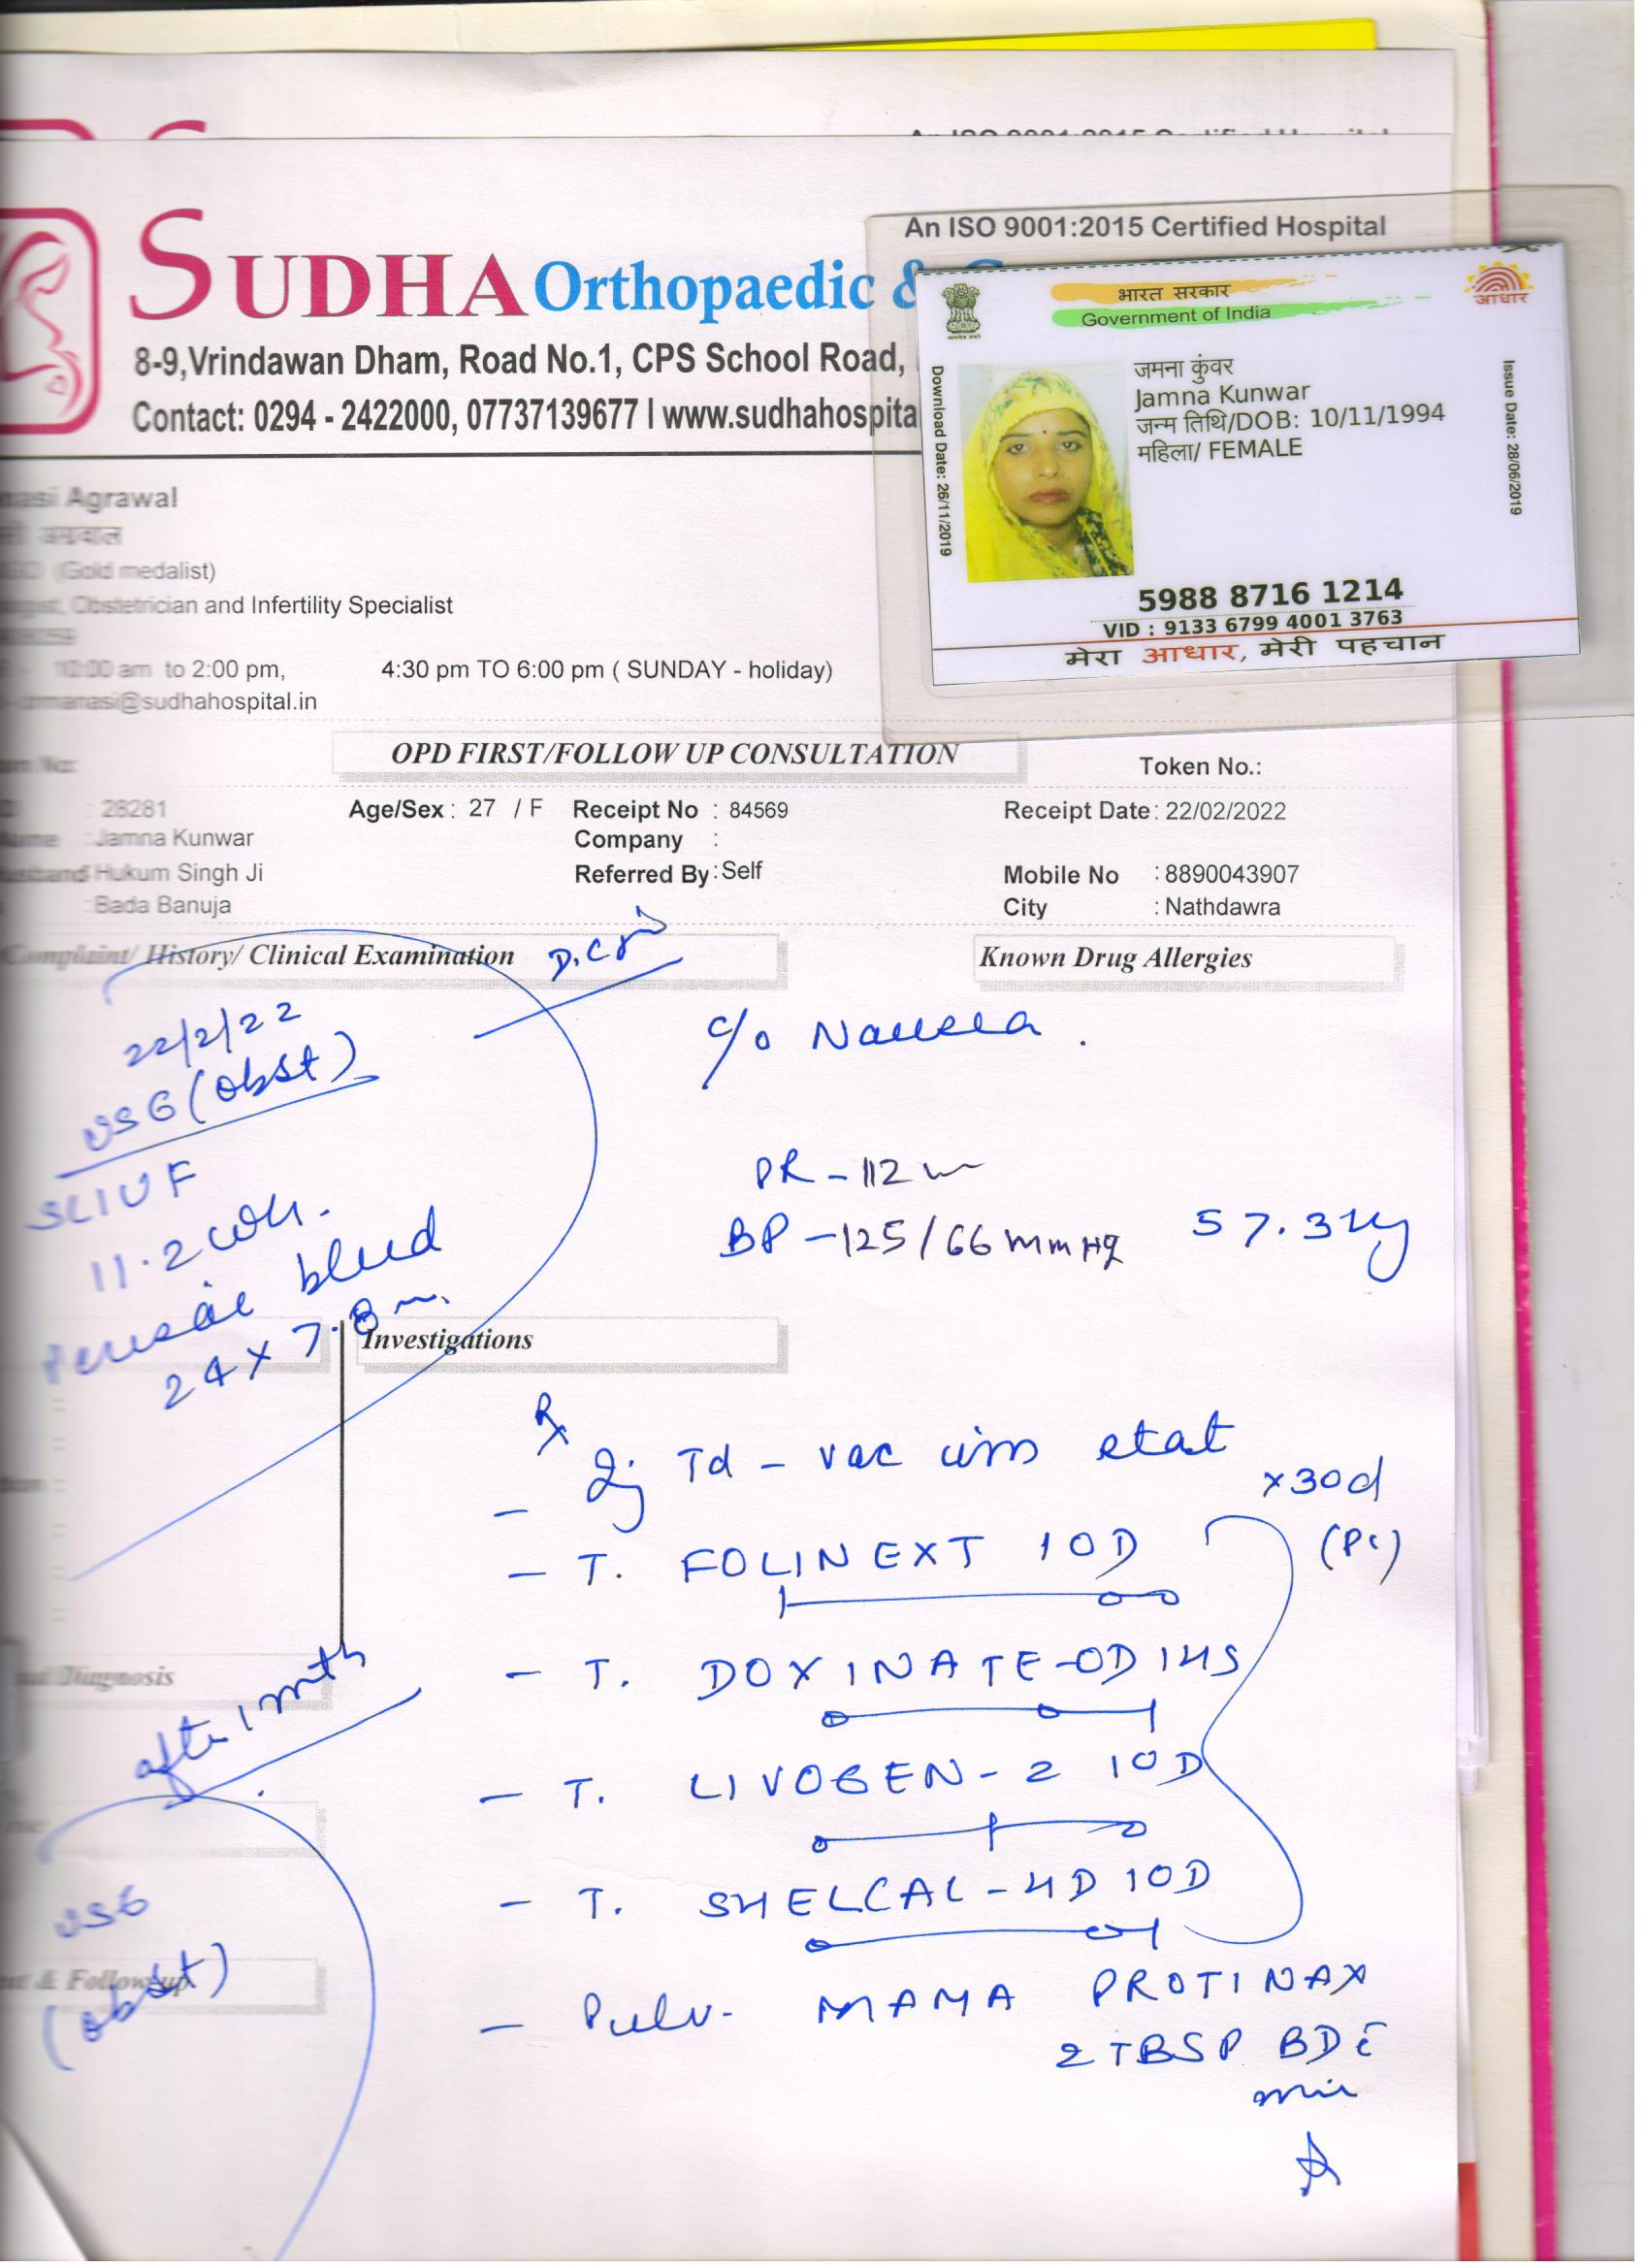 An ISO 9001:2015 Certified Hospital
SUDHA Orthopaedic &
8-9,Vrindawan Dham, Road No.1, CPS School Road,
Contact: 0294 - 2422000, 07737139677 | www.sudhahospita
भारत सरकार
Government of India
आधार
जमना कुंवर
Jamna Kunwar
जन्म तिथि/DOB: 10/11/1994
महिला/ FEMALE
Download Date: 26/11/2019
Issue Date: 28/06/2019
5988 8716 1214
VID : 9133 6799 4001 3763
मेरा आधार, मेरी पहचान
Agrawal
(Gold medalist)
Obstetrician and Infertility Specialist
10:00 am to 2:00 pm, 4:30 pm TO 6:00 pm ( SUNDAY - holiday)
drmanasi@sudhahospital.in
OPD FIRST/FOLLOW UP CONSULTATION
Token No.:
: 28281 Age/Sex : 27 / F Receipt No : 84569 Receipt Date : 22/02/2022
: Jamna Kunwar Company :
Hukum Singh Ji Referred By : Self Mobile No : 8890043907
: Bada Banuja City : Nathdawra
Complaint/ History/ Clinical Examination
Known Drug Allergies
22/2/22
USG (obst)
SLIUF
11.2 wk.
bleed
24 x 7.8
c/o Nausea.
PR - 112
BP - 125/66 mmHg 57.3 kg
Investigations
Rx
- Inj Td - vac i/m stat
x30d
(PC)
- T. FOLINEXT 1OD
- T. DOXINATE-OD 1HS
- T. LIVOGEN-Z 1OD
- T. SHELCAL-HD 1OD
- Pulv. MAMA PROTINAX
2 TBSP BD c̄
Diagnosis
after 1 mnth
USG
(obst)
& Follow up